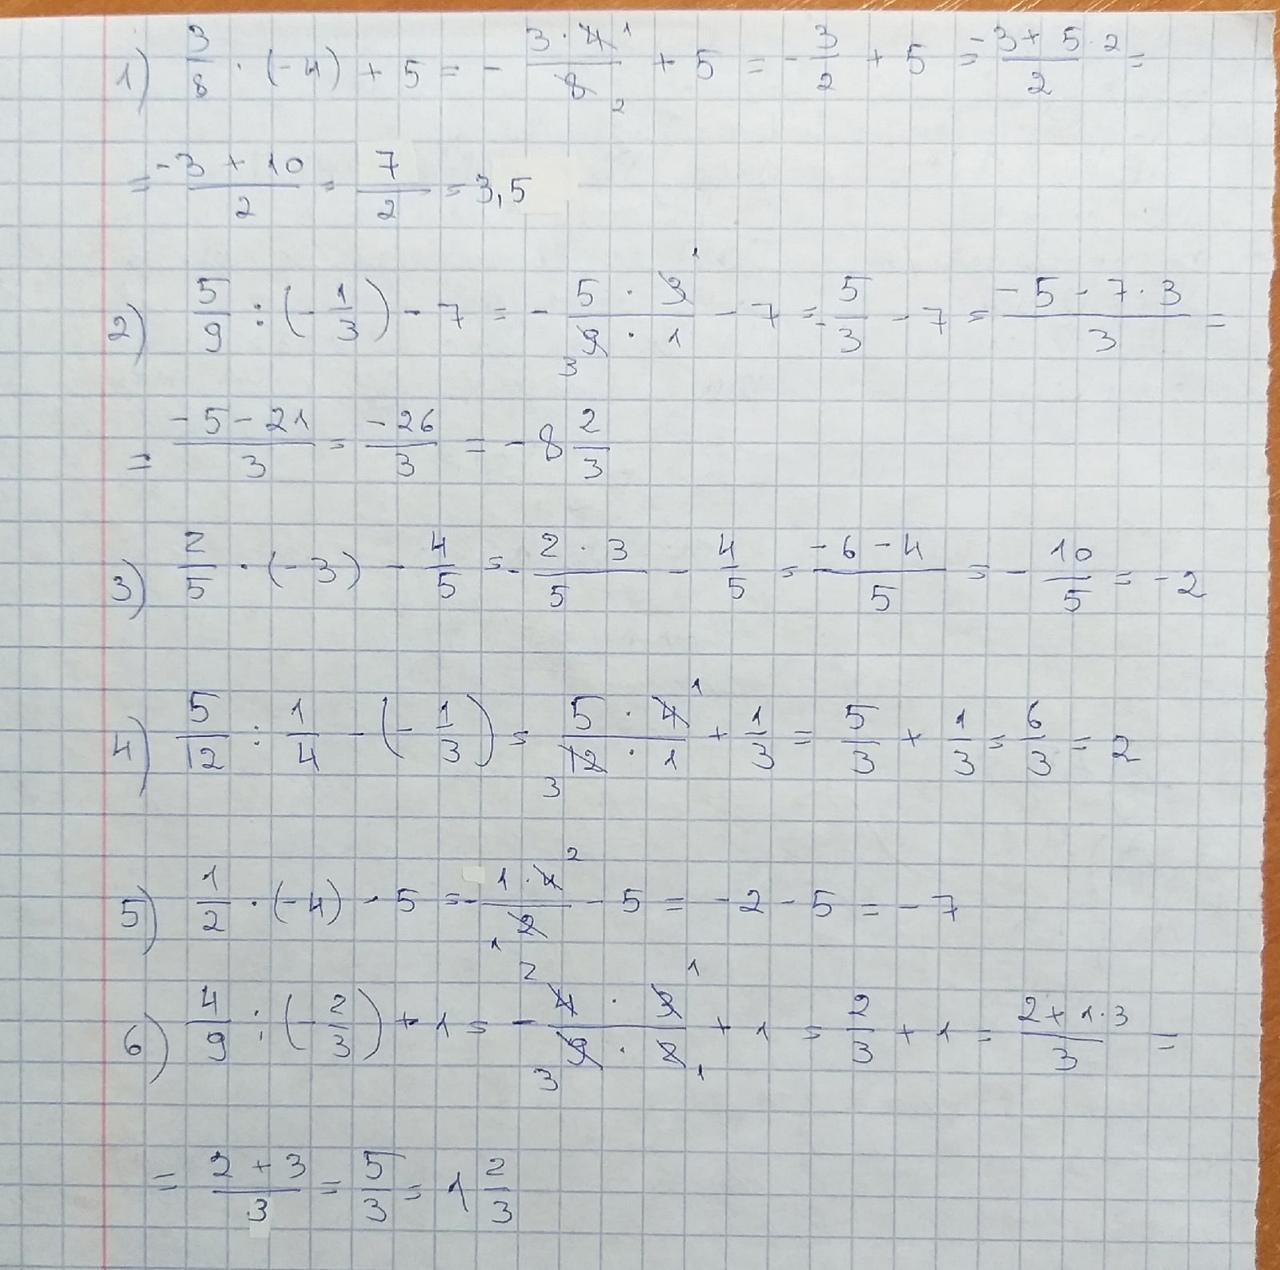 1) 3/8 · (-4) + 5 = - 3 · 4 1/8 2 + 5 = - 3/2 + 5 = -3 + 5 · 2/2 =
= -3 + 10/2 = 7/2 = 3,5
2) 5/9 : (- 1/3) - 7 = - 5 · 3 1/3 9 · 1 - 7 = - 5/3 - 7 = -5 - 7 · 3/3 =
= -5 - 21/3 = -26/3 = -8 2/3
3) 2/5 · (-3) - 4/5 = - 2 · 3/5 - 4/5 = -6 - 4/5 = - 10/5 = -2
4) 5/12 : 1/4 - (- 1/3) = 5 · 4 1/3 12 · 1 + 1/3 = 5/3 + 1/3 = 6/3 = 2
5) 1/2 · (-4) - 5 = - 1 · 4 2/1 2 - 5 = -2 - 5 = -7
6) 4/9 : (- 2/3) + 1 = - 2 4 · 3 1/3 9 · 2 1 + 1 = 2/3 + 1 = 2 + 1 · 3/3 =
= 2 + 3/3 = 5/3 = 1 2/3